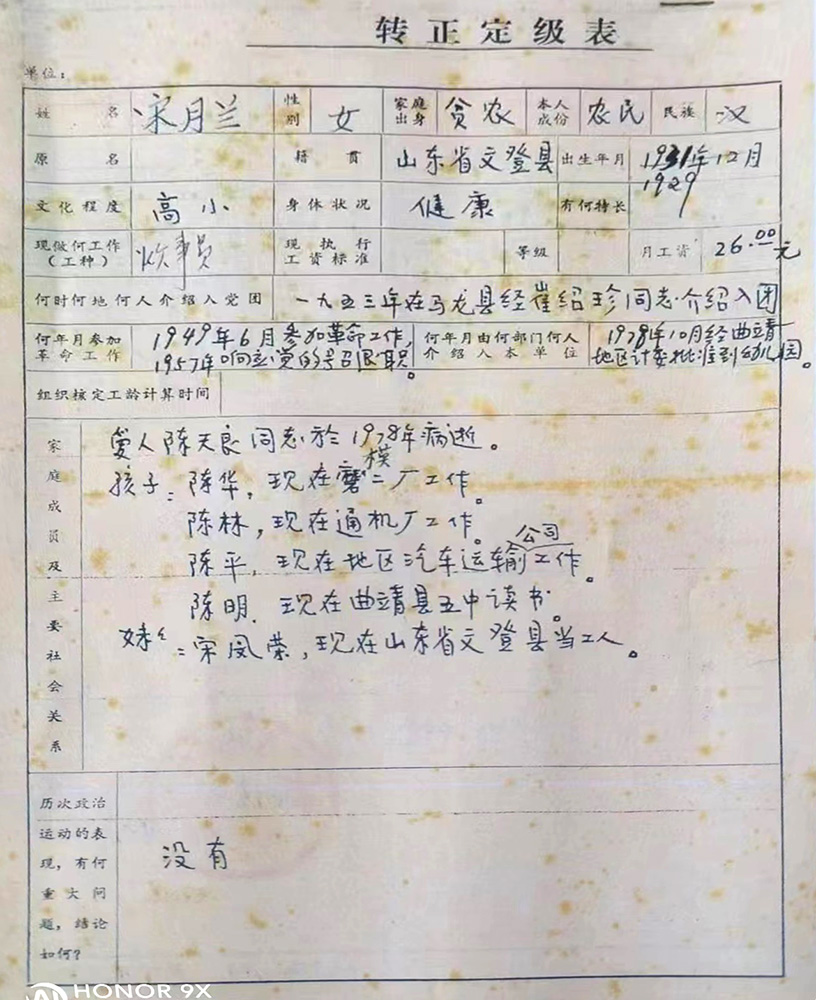 转正定级表
单位：
姓名 宋月兰 性别 女 家庭出身 贫农 本人成份 农民 民族 汉
原名 籍贯 山东省文登县 出生年月 1931年12月
1929
文化程度 高小 身体状况 健康 有何特长
现做何工作（工种） 炊事员 现执行工资标准 等级 月工资 26.00元
何时何地何人介绍入党团 一九五三年在马龙县经崔绍珍同志介绍入团
何年月参加革命工作 1949年6月参加革命工作，1957年响应党的号召退职。 何年月由何部门何人介绍入本单位 1978年10月经曲靖地区计委批准到幼儿园。
组织核定工龄计算时间
家庭成员及主要社会关系
爱人陈天良同志於1978年病逝。
孩子：陈华，现在模二厂工作。
陈林，现在通机厂工作。
陈平，现在地区汽车运输公司工作。
陈明．现在曲靖县五中读书。
妹：宋凤荣，现在山东省文登县当工人。
历次政治运动的表现，有何重大问题，结论如何？
没有
HONOR 9X